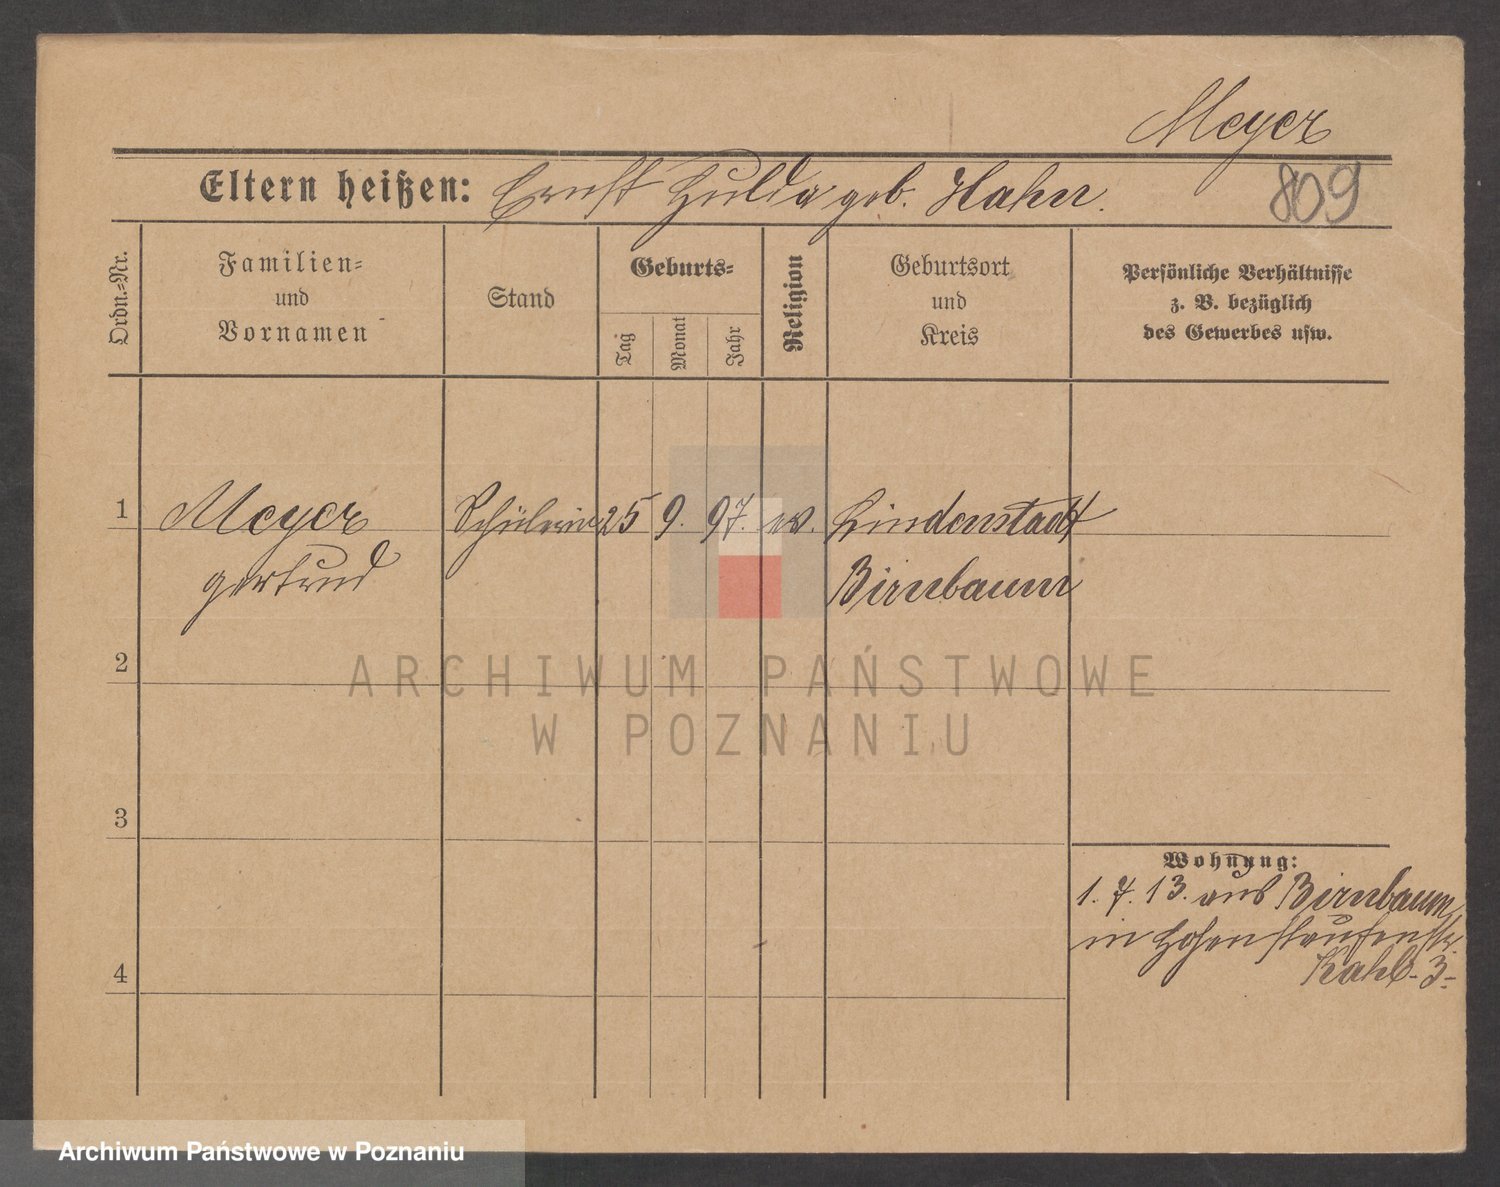 Meyer
Eltern heißen: Ernst Hulda geb. Hahn.
809
Ordn.=Nr.
Familien=
und
Vornamen
Stand
Geburts=
Tag
Monat
Jahr
Religion
Geburtsort
und
Kreis
Persönliche Verhältnisse
z. B. bezüglich
des Gewerbes usw.
1 Meyer Schülerin 25 9. 97. ev. Lindenstadt
gertrud Birnbaum
2
ARCHIWUM PAŃSTWOWE
W POZNANIU
3
Wohnung:
1. 7. 13. aus Birnbaum
in Hohenstaufenstr.
3
4
Archiwum Państwowe w Poznaniu